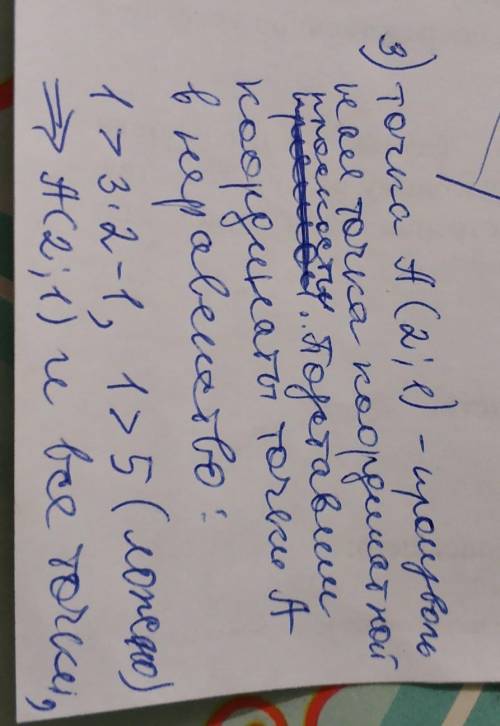 3) точка A(2; 1) - произволь
ная точка координатной
плоскости. Подставим
координаты точки A
в неравенство:
1 > 3·2-1, 1 > 5 (ложно)
⇒ A(2; 1) и все точки,